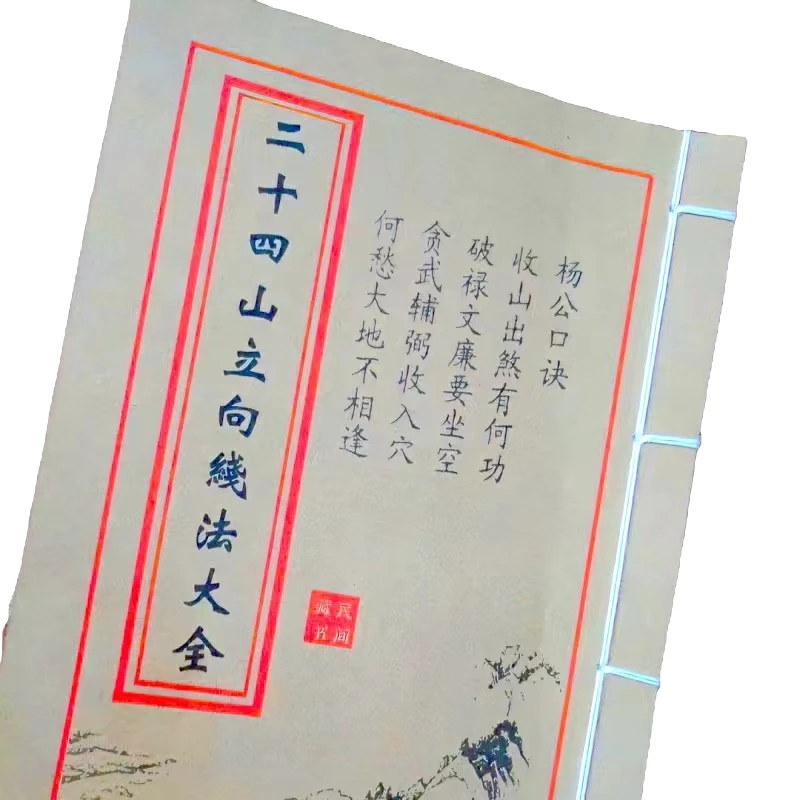 杨公口诀
收山出煞有何功
破禄文廉要坐空
贪武辅弼收入穴
何愁大地不相逢
二十四山立向綫法大全
民间
藏书